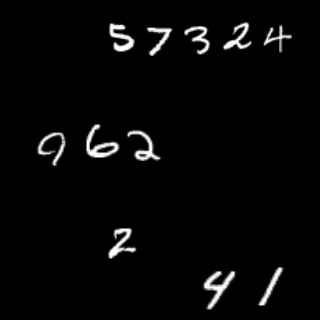 57324
962
2
41